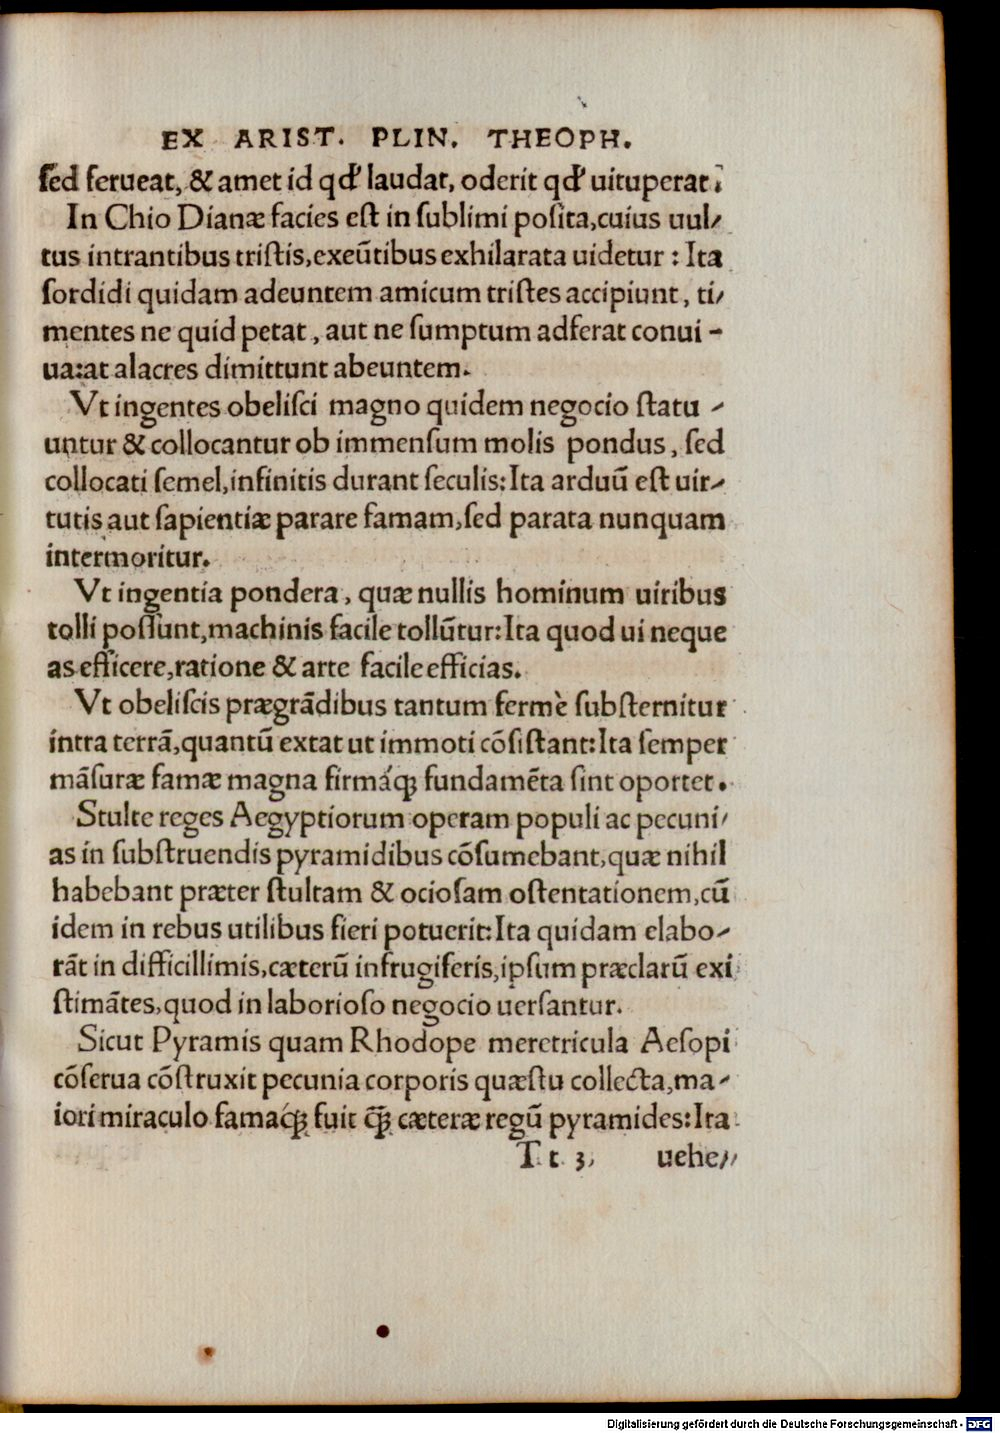 EX ARIST. PLIN. THEOPH.
ſed ferueat, & amet id qđ laudat, oderit qđ uituperat.
In Chio Dianæ facies eſt in ſublimi poſita,cuius uul/
tus intrantibus triſtis,exeūtibus exhilarata uidetur : Ita
ſordidi quidam adeuntem amicum triſtes accipiunt, ti/
mentes ne quid petat, aut ne ſumptum adferat conui -
ua:at alacres dimittunt abeuntem.
Vt ingentes obeliſci magno quidem negocio ſtatu -
untur & collocantur ob immenſum molis pondus, ſed
collocati ſemel,infinitis durant ſeculis:Ita arduū eſt uir-
tutis aut ſapientiæ parare famam,ſed parata nunquam
intermoritur.
Vt ingentia pondera, quæ nullis hominum uiribus
tolli poſſunt,machinis facile tollūtur:Ita quod ui neque
as efficere,ratione & arte facile efficias.
Vt obeliſcis prægrādibus tantum fermè ſubſternitur
intra terrā,quantū extat ut immoti cōſiſtant:Ita ſemper
māſuræ famæ magna firmáq; fundamēta ſint oportet.
Stulte reges Aegyptiorum operam populi ac pecuni/
as in ſubſtruendis pyramidibus cōſumebant,quæ nihil
habebant præter ſtultam & ocioſam oſtentationem,cū
idem in rebus utilibus fieri potuerit:Ita quidam elabo-
rāt in difficillimis,cæterū infrugiferis,ipſum præclarū exi
ſtimātes,quod in laborioſo negocio uerſantur.
Sicut Pyramis quam Rhodope meretricula Aeſopi
cōſerua cōſtruxit pecunia corporis quæſtu collecta,ma-
iori miraculo famáq; fuit q̄; cæteræ regū pyramides:Ita
T t 3, uehe//
Digitalisierung gefördert durch die Deutsche Forschungsgemeinschaft - DFG